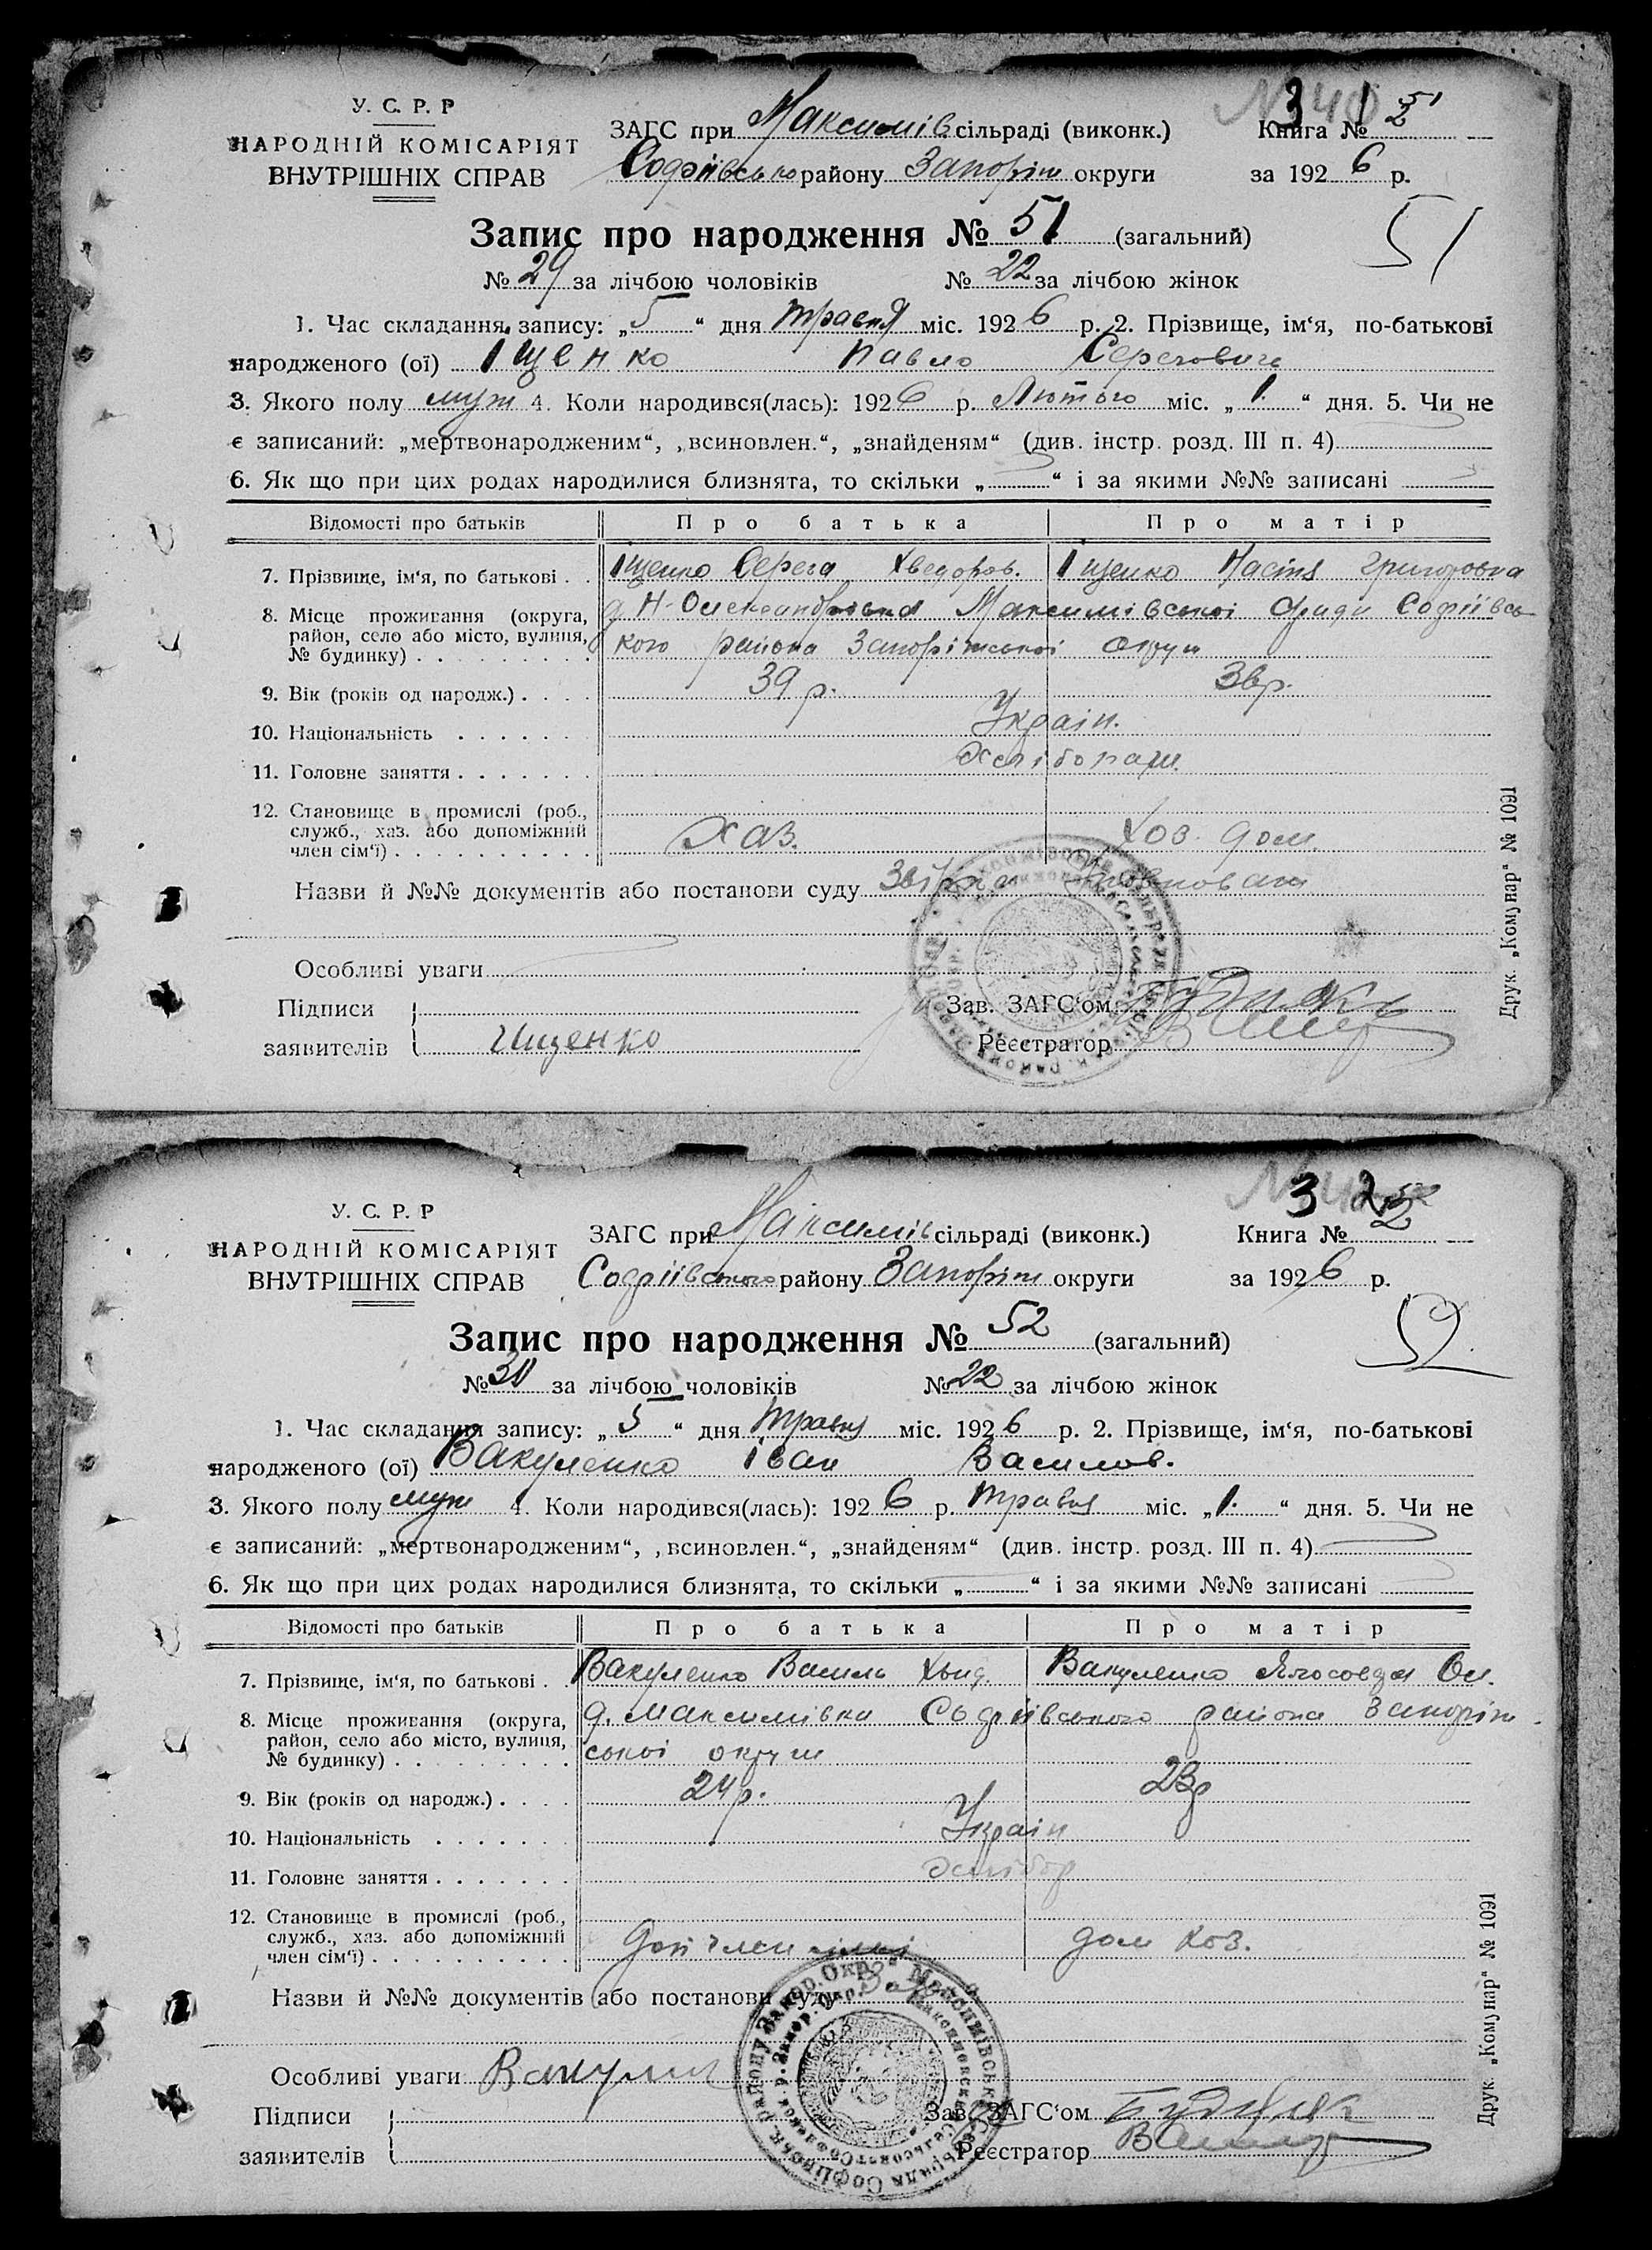 У. С. Р. Р
НАРОДНІЙ КОМІСАРІЯТ
ВНУТРІШНІХ СПРАВ
ЗАГС при Максимів сільраді (виконк.)
Софіївсько району Запоріж округи
Книга № 2
за 1926 р.
51
Запис про народження № 51 (загальний)
№ 29 за лічбою чоловіків № 22 за лічбою жінок
1. Час складання запису: „5“ дня травня міс. 1926 р. 2. Прізвище, ім‘я, по-батькові
народженого (ої) Іщенко Павло Серегович
3. Якого полу муж 4. Коли народився(лась): 1926 р. Лютого міс. „1.“ дня. 5. Чи не
є записаний: „мертвонародженим“, „всиновлен.“, „знайденям“ (див. інстр. розд. III п. 4)
6. Як що при цих родах народилися близнята, то скільки „ “ і за якими №№ записані
Відомості про батьків Про батька Про матір
7. Прізвище, ім‘я, по батькові . . Іщенко Серега Хведоров. Іщенко Настя Григоровна
8. Місце проживання (округа, район, село або місто, вулиця, № будинку) . . . . . . . . . д. Н-Олександровка Максимівської Сради Софіївсь
кого района Запоріжської округи
9. Вік (років од народж.) . . . . 39 р. 38р.
10. Національність . . . . . . . Україн.
11. Головне заняття . . . . . . . Хлібопаш.
12. Становище в промислі (роб., служб., хаз. або допоміжний член сім‘ї) . . . . . . . . . . Хаз. Хоз. дом.
Назви й №№ документів або постанови суду
Особливі уваги
Підписи
заявителів Ищенко
Зав. ЗАГС‘ом
Реєстратор
Друк. „Комунар“ № 1091
У. С. Р. Р
НАРОДНІЙ КОМІСАРІЯТ
ВНУТРІШНІХ СПРАВ
ЗАГС при Максимів сільраді (виконк.)
Софіївського району Запоріж округи
Книга № 2
за 1926 р.
52
Запис про народження № 52 (загальний)
№ 30 за лічбою чоловіків № 22 за лічбою жінок
1. Час складання запису: „5“ дня травня міс. 1926 р. 2. Прізвище, ім‘я, по-батькові
народженого (ої) Вакуленко Іван Василов.
3. Якого полу муж 4. Коли народився(лась): 1926 р. травня міс. „1.“ дня. 5. Чи не
є записаний: „мертвонародженим“, „всиновлен.“, „знайденям“ (див. інстр. розд. III п. 4)
6. Як що при цих родах народилися близнята, то скільки „ “ і за якими №№ записані
Відомості про батьків Про батька Про матір
7. Прізвище, ім‘я, по батькові . . Вакуленко Василь Вакуленко
8. Місце проживання (округа, район, село або місто, вулиця, № будинку) . . . . . . . . . д. Максимівка Софіївського района Запоріж
ської округи
9. Вік (років од народж.) . . . . 24р. 23р
10. Національність . . . . . . . Україн
11. Головне заняття . . . . . . . Хлібор
12. Становище в промислі (роб., служб., хаз. або допоміжний член сім‘ї) . . . . . . . . . . Доп член сімї дом хоз.
Назви й №№ документів або постанови суду
Особливі уваги
Підписи
заявителів
Зав. ЗАГС‘ом Будник
Реєстратор
Друк. „Комунар“ № 1091